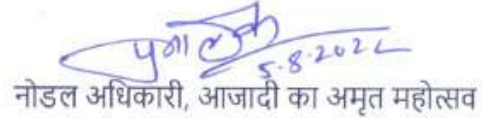 5.8.2022
नोडल अधिकारी, आजादी का अमृत महोत्सव